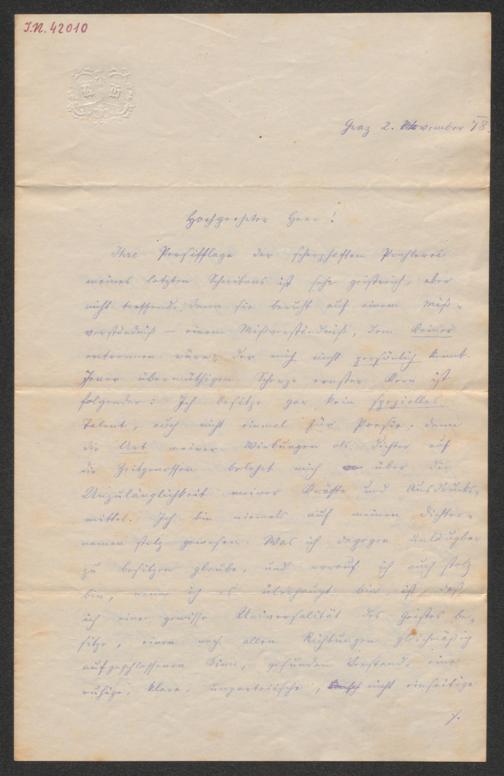 I.N. 42010
Graz 2. November 78.
Hochgeehrter Herr!
Ihre Persifflage der scherzhaften Prahlerei
meines letzten Schreibens ist sehr geistreich, aber
nicht treffend; denn sie beruht auf einem Miß-
verständniß – einem Mißverständniß, dem Keiner
entronnen wäre, der mich nicht persönlich kennt.
Jenes übermüthigen Scherzes ernster Kern ist
folgender: Ich besitze gar kein spezielles
Talent, auch nicht einmal für Poesie; denn
die Art meiner Wirkungen als Dichter auf
die Zeitgenossen belehrt mich über die
Unzulänglichkeit meiner Kräfte und Ausdrucks-
mittel. Ich bin niemals auf meinen Dichter-
namen stolz gewesen. Was ich dagegen unläugbar
zu besitzen glaube, und worauf ich auch stolz
bin, wenn ich es überhaupt bin, ist, daß
ich eine gewisse Universalität des Geistes be-
sitze, einen nach allen Richtungen gleichmäßig
aufgeschlossenen Sinn, gesunden Verstand, eine
ruhige, klare, unparteiische, nicht einseitige